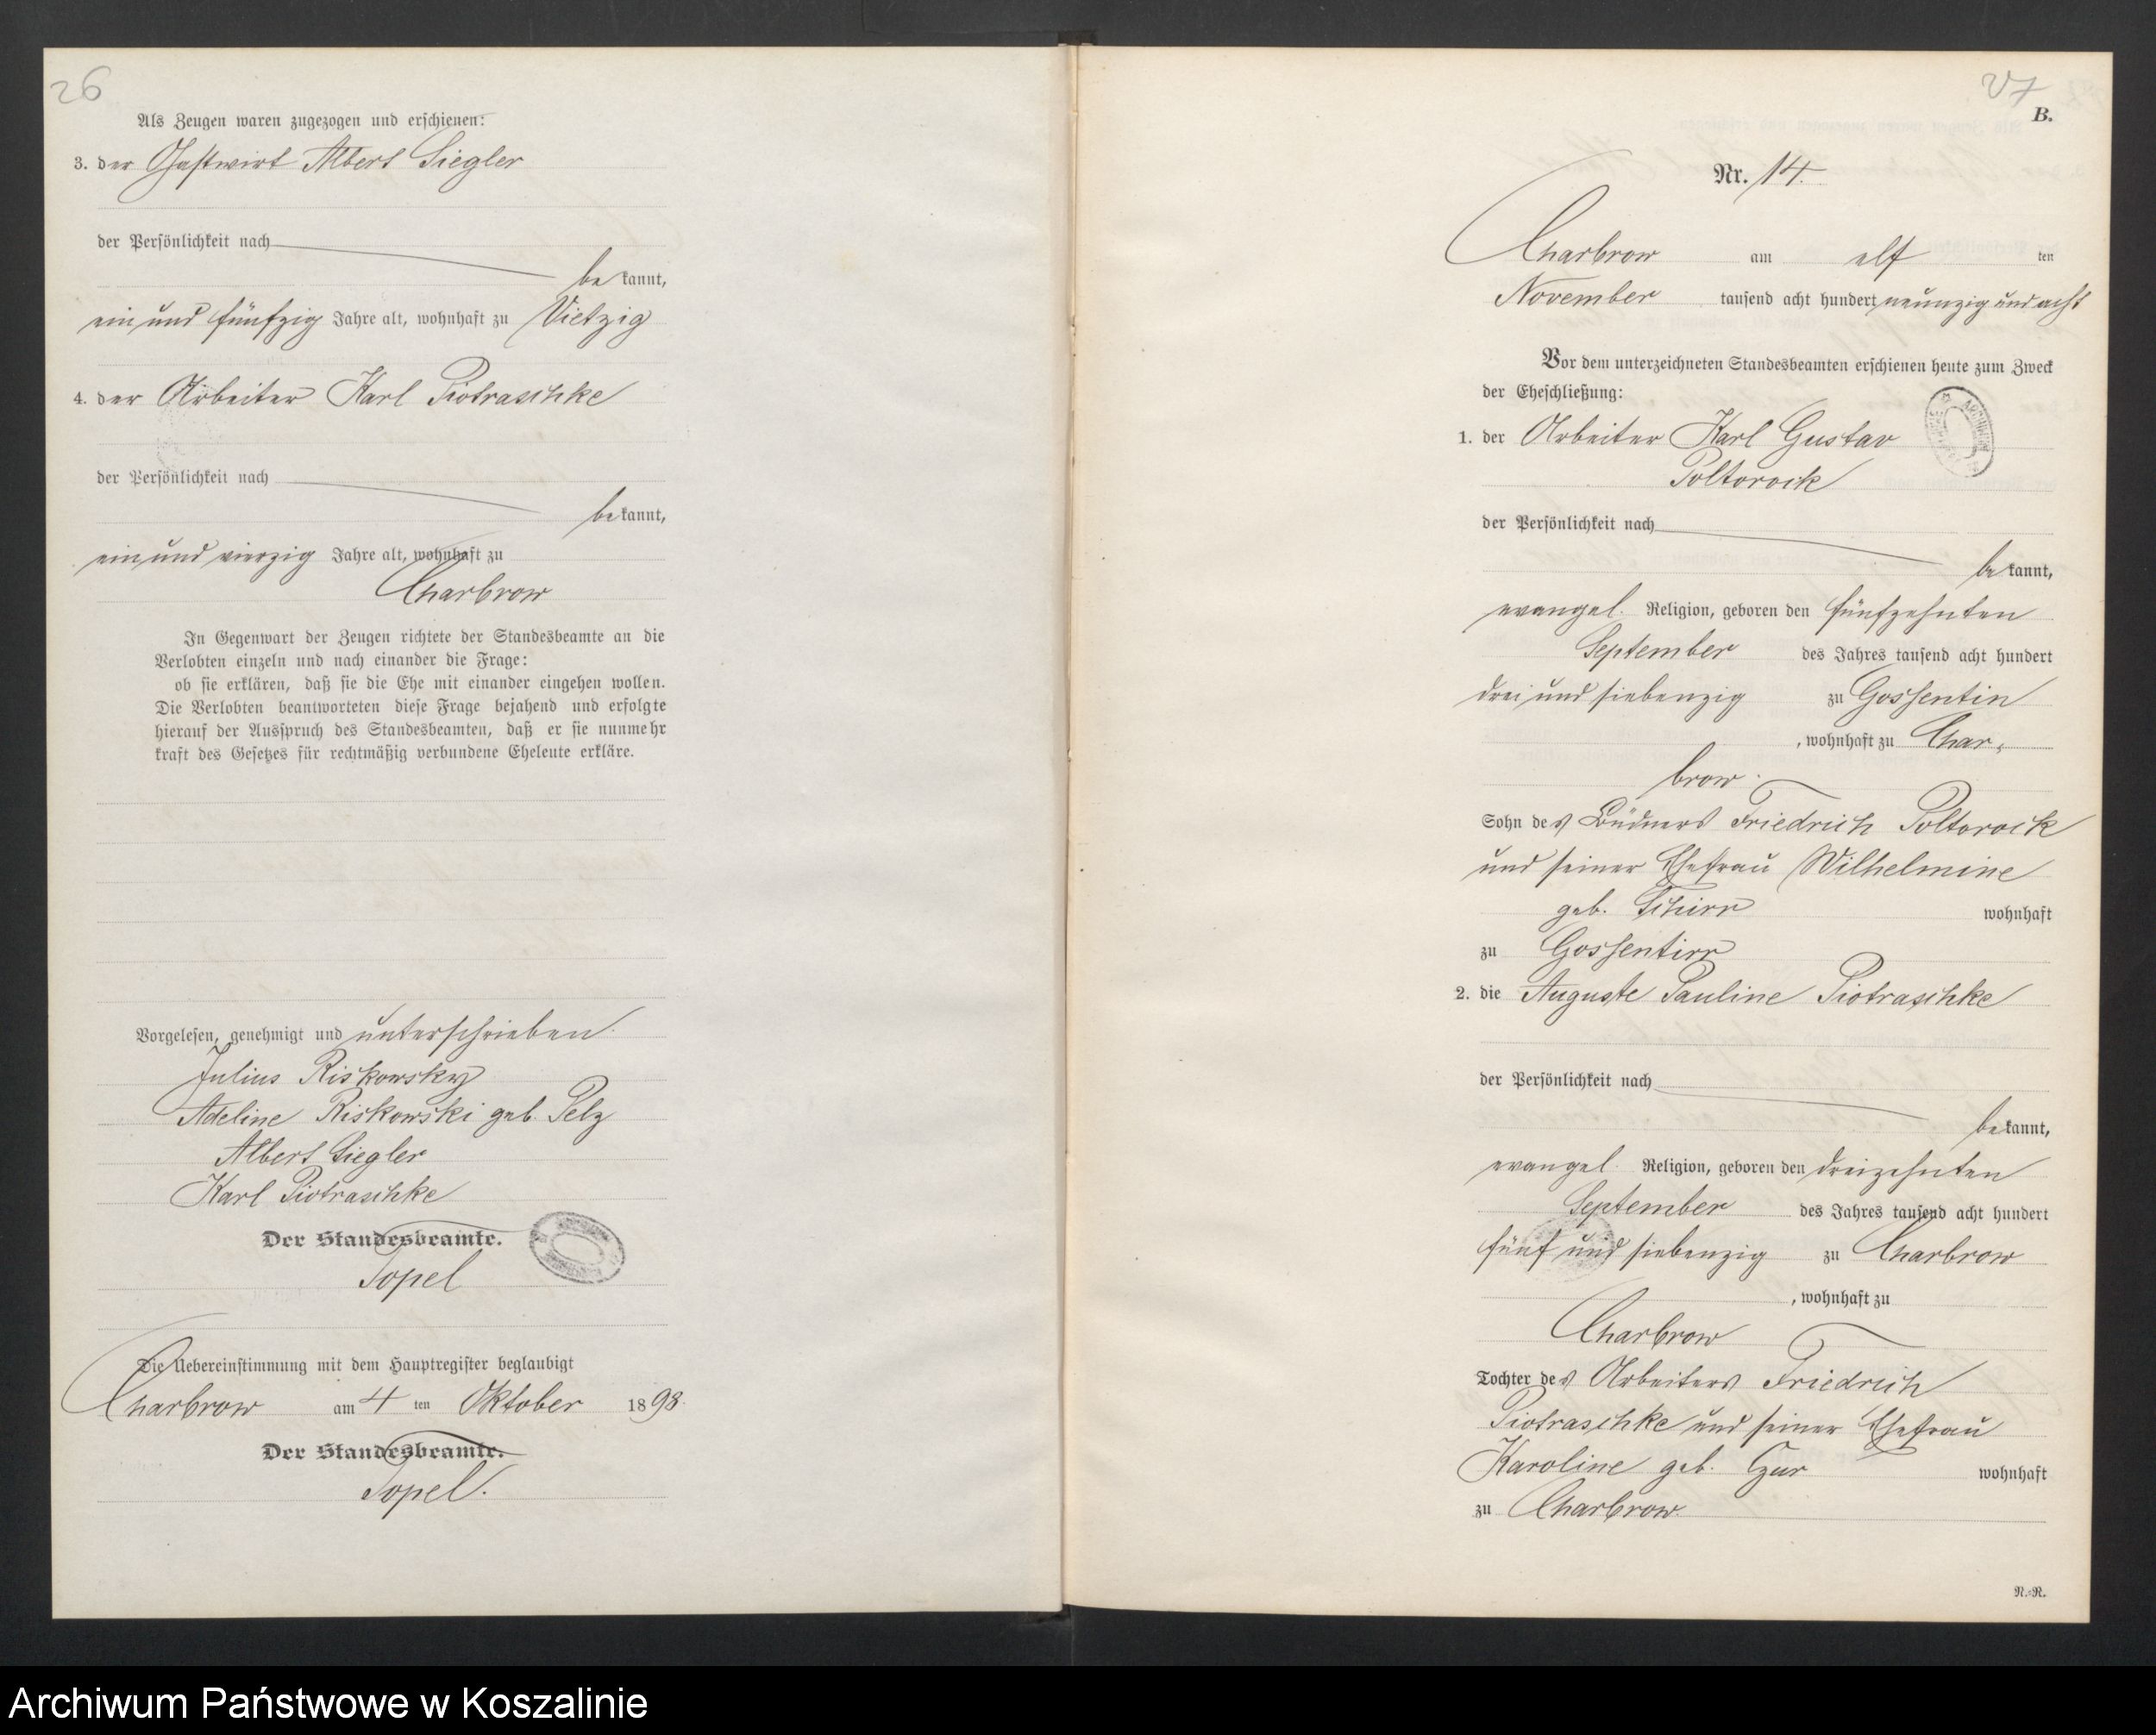 26
Als Zeugen waren zugezogen und erschienen:
3. der Gastwirt Albert Siegler
der Persönlichkeit nach
be kannt,
ein und fünfzig Jahre alt, wohnhaft zu Vietzig
4. der Arbeiter Karl Piotraschke
der Persönlichkeit nach
be kannt,
ein und vierzig Jahre alt, wohnhaft zu
Charbrow
In Gegenwart der Zeugen richtete der Standesbeamte an die
Verlobten einzeln und nach einander die Frage:
ob sie erklären, daß sie die Ehe mit einander eingehen wollen.
Die Verlobten beantworteten diese Frage bejahend und erfolgte
hierauf der Ausspruch des Standesbeamten, daß er sie nunmehr
kraft des Gesetzes für rechtmäßig verbundene Eheleute erkläre.
Vorgelesen, genehmigt und unterschrieben.
Julius Riskowsky
Adeline Riskowski geb. Pelz
Albert Siegler
Karl Piotraschke
Der Standesbeamte.
Topel
Die Uebereinstimmung mit dem Hauptregister beglaubigt
Charbrow am 4 ten Oktober 1898
Der Standesbeamte.
Topel.
27
B.
Nr. 14.
Charbrow am elf ten
November tausend acht hundert neunzig und acht
Vor dem unterzeichneten Standesbeamten erschienen heute zum Zweck
der Eheschließung:
1. der Arbeiter Karl Gustav
Poltorock
der Persönlichkeit nach
be kannt,
evangel. Religion, geboren den fünfzehnten
September des Jahres tausend acht hundert
drei und siebenzig zu Gossentin
, wohnhaft zu Char-
brow.
Sohn des Büdners Friedrich Poltorock
und seiner Ehefrau Wilhelmine
geb. wohnhaft
zu Gossentin
2. die Auguste Pauline Piotraschke
der Persönlichkeit nach
be kannt,
evangel. Religion, geboren den dreizehnten
September des Jahres tausend acht hundert
fünf und siebenzig zu Charbrow
, wohnhaft zu
Charbrow
Tochter des Arbeiters Friedrich
Piotraschke und seiner Ehefrau
Karoline geb. wohnhaft
zu Charbrow.
N.-R.
Archiwum Państwowe w Koszalinie